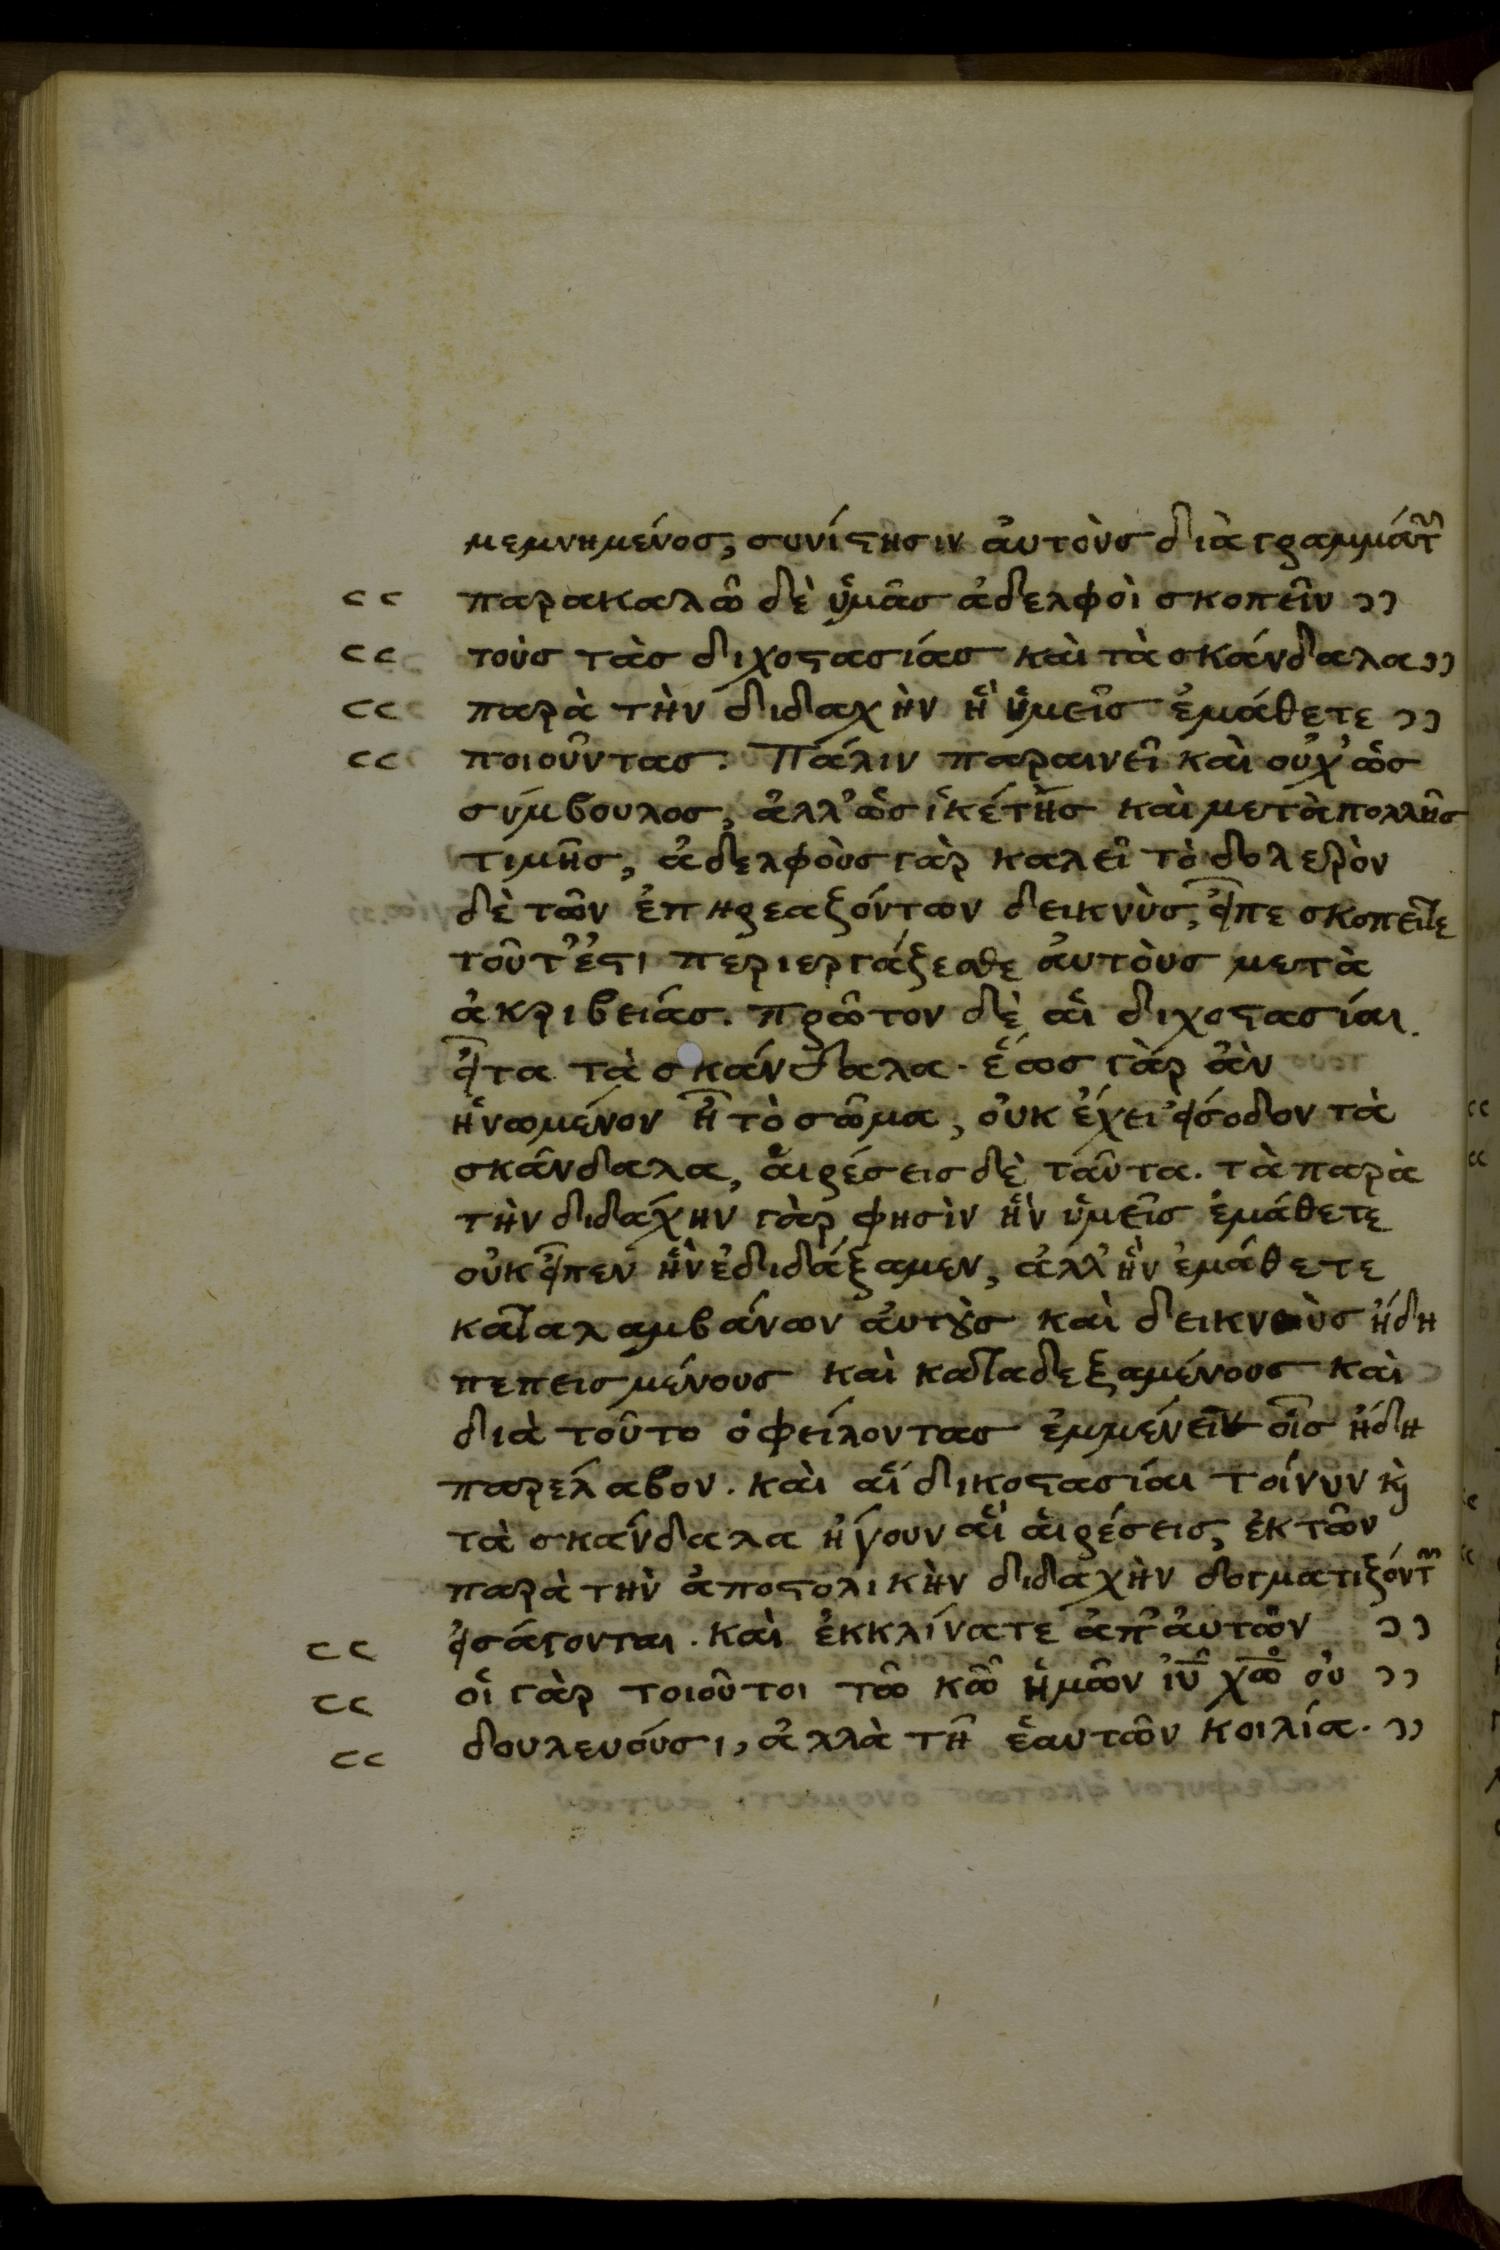 μεμνημένος, συνίστησιν ἀυτοὺς διὰ γραμμάτ
παρακαλῶ δὲ ὑμᾶς ἀδελφοὶ σκοπεῖν
τοὺς τὰς διχοστασίας καὶ τὰ σκάνδαλα
παρὰ τὴν διδαχὴν ἣ ὑμεῖς ἐμάθετε
ποιοῦντας. Πάλιν παραινεῖ καὶ οὐχ' ὡς
σύμβουλος, ἀλλ' ὡς ἱκέτης καὶ μετὰ πολλῆς
τιμῆς, ἀδελφοὺς γὰρ καλεῖ τὸ δολερὸν
δὲ τῶν ἐπηρεαζόντων δεικνὺς, εἶπε σκοπεῖτε
τοῦτ' ἔστι περιεργάζεσθε ἀυτοὺς μετὰ
ἀκριβείας. πρῶτον δὲ αἱ διχοστασίαι.
εἶτα τὰ σκάνδαλα. ἕως γὰρ ἂν
ἡνωμένον ἦ τὸ σῶμα, οὐκ ἔχει εἴσοδον τὰ
σκάνδαλα, ἁιρέσεις δὲ ταῦτα. τὰ παρὰ
τὴν διδάχην γὰρ φησὶν ἣν ὑμεῖς ἐμάθετε
οὐκ εἶπεν ἣν ἐδιδάξαμεν, ἀλλ' ἣν ἐμάθετε
καταλαμβάνων ἀυτοὺς καὶ δεικνὺς ἤδη
πεπεισμένους καὶ καταδεξαμένους καὶ
διὰ τοῦτο ὀφείλοντας ἐμμένειν οἷς ἤδη
παρέλαβον. καὶ αἱ δικοστασίαι τοίνυν κὶ
τὰ σκάνδαλα ἤγουν αἱ ἁιρέσεις, ἐκ τῶν
παρὰ τὴν ἀποστολικὴν διδαχὴν δογματιζόντ
εἰσάγονται. καὶ ἐκκλίνατε ἀπ' ἀυτῶν
οἱ γὰρ τοιοῦτοι τῶ κῶ ἡμῶν ἰῦ χῶ οὐ
δουλεύουσι, ἀλλὰ τῆ ἑαυτῶν κοιλία.